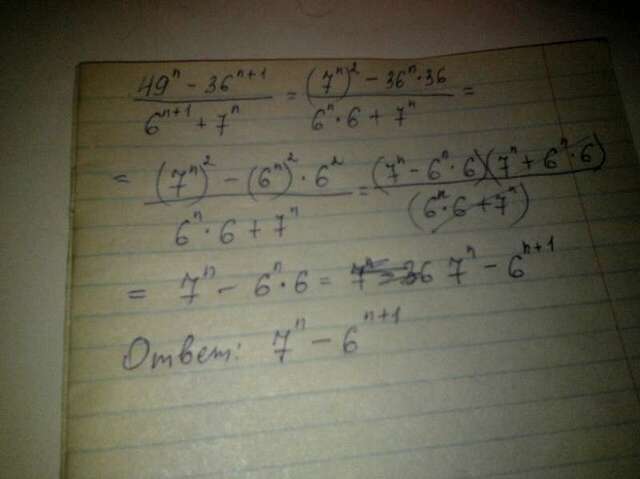 (49ⁿ - 36ⁿ⁺¹)/(6ⁿ⁺¹ + 7ⁿ) = ((7ⁿ)² - 36ⁿ · 36)/(6ⁿ · 6 + 7ⁿ) =
= ((7ⁿ)² - (6ⁿ)² · 6²)/(6ⁿ · 6 + 7ⁿ) = ((7ⁿ - 6ⁿ · 6)(7ⁿ + 6ⁿ · 6))/((6ⁿ · 6 + 7ⁿ))
= 7ⁿ - 6ⁿ · 6 = 7ⁿ - 6ⁿ⁺¹
Ответ: 7ⁿ - 6ⁿ⁺¹